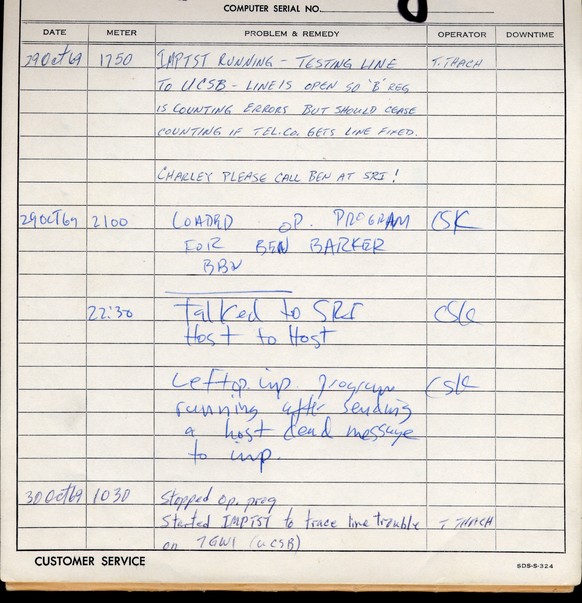 COMPUTER SERIAL NO.
DATE METER PROBLEM & REMEDY OPERATOR DOWNTIME
29Oct69 1750 IMPTST RUNNING - TESTING LINE T. THACH
TO UCSB - LINE IS OPEN SO 'B' REG
IS COUNTING ERRORS BUT SHOULD CEASE
COUNTING IF TEL.CO. GETS LINE FIXED.
CHARLEY PLEASE CALL BEN AT SRI!
29OCT69 2100 LOADED OP. PROGRAM CSK
FOR BEN BARKER
BBN
22:30 Talked to SRI CSK
Host to Host
Left op. imp. program CSK
running after sending
a host dead message
to imp.
30Oct69 1030 Stopped op. prog
Started IMPTST to trace line trouble T THACH
on (UCSB)
CUSTOMER SERVICE SDS-S-324